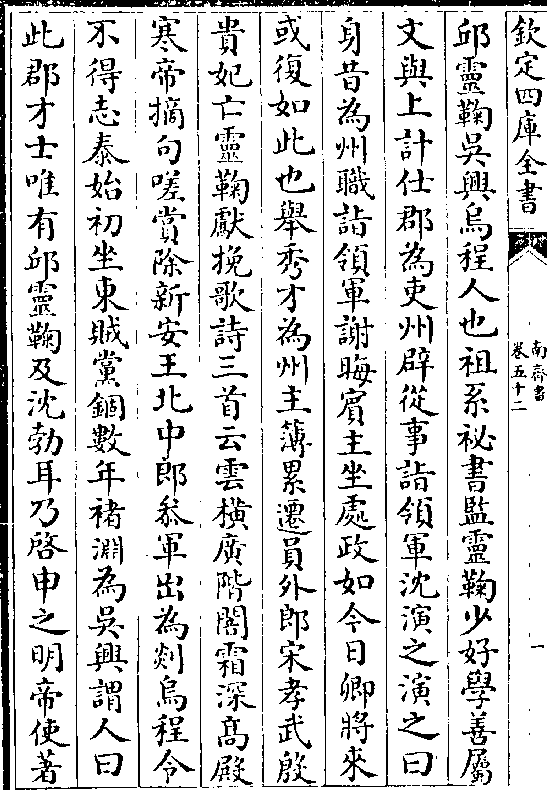 欽定四庫全書
南齊書
卷五十二
一
邱靈鞠吳興烏程人也祖系祕書監靈鞠少好學善屬
文與上計仕郡為吏州辟從事詣領軍沈演之演之曰
身昔為州職詣領軍謝晦賓主坐處政如今日卿將來
或復如此也舉秀才為州主簿累遷員外郎宋孝武殷
貴妃亡靈鞠獻挽歌詩三首云雲橫廣階闇霜深高殿
寒帝摘句嗟賞除新安王北中郎叅軍出為剡烏程令
不得志泰始初坐東賊黨錮數年褚淵為吳興謂人曰
此郡才士唯有邱靈鞠及沈勃耳乃啓申之明帝使著